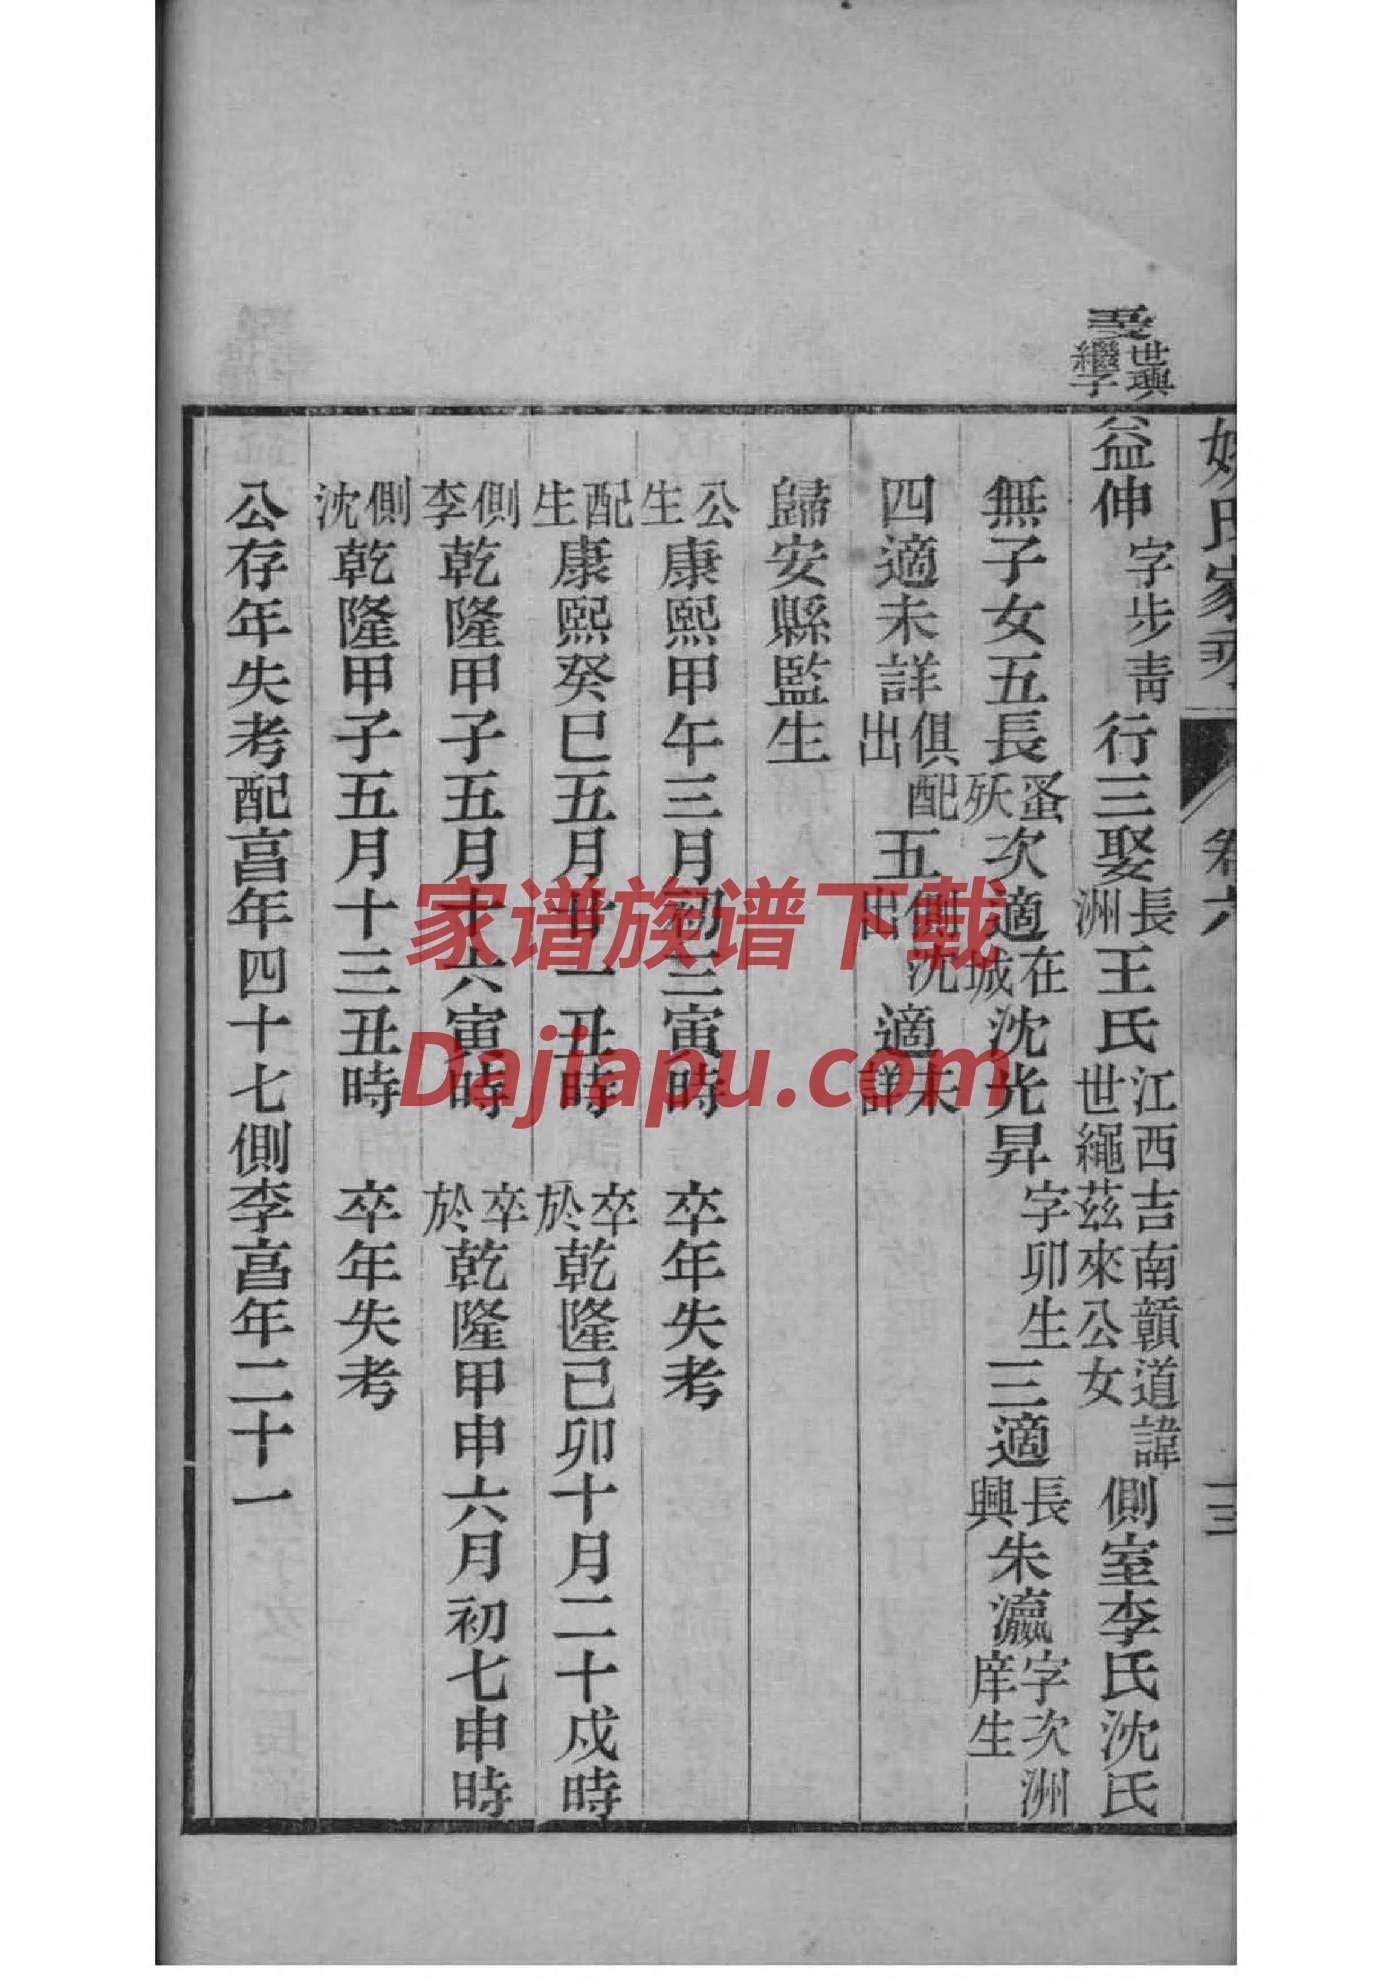 姚氏家乘 卷六 三
世璵繼子
益伸字步靑行三娶長洲王氏江西吉南贛道諱世繩茲來公女側室李氏沈氏
無子女五長蚤殀次適在城沈光昇字卯生三適長興朱瀛字次洲庠生
四適未詳俱配出五側沈出適未詳
歸安縣監生
公生康熙甲午三月初三寅時 卒年失考
配生康熙癸巳五月廿一丑時 卒於乾隆己卯十月二十戍時
側李乾隆甲子五月十六寅時 卒於乾隆甲申六月初七申時
側沈乾隆甲子五月十三丑時 卒年失考
公存年失考配亯年四十七側李亯年二十一
家谱族谱下载
Dajiapu.com